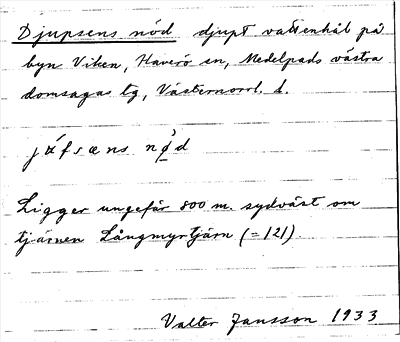 Djupsens nöd djupt vattenhål på
byn Viken, Haverö sn, Medelpads västra
domsagas tg, Västernorrl. l.
Ligger ungefär 800 m. sydväst om
tjärnen Långmyrtjärn (= 121).
Valter Jansson 1933